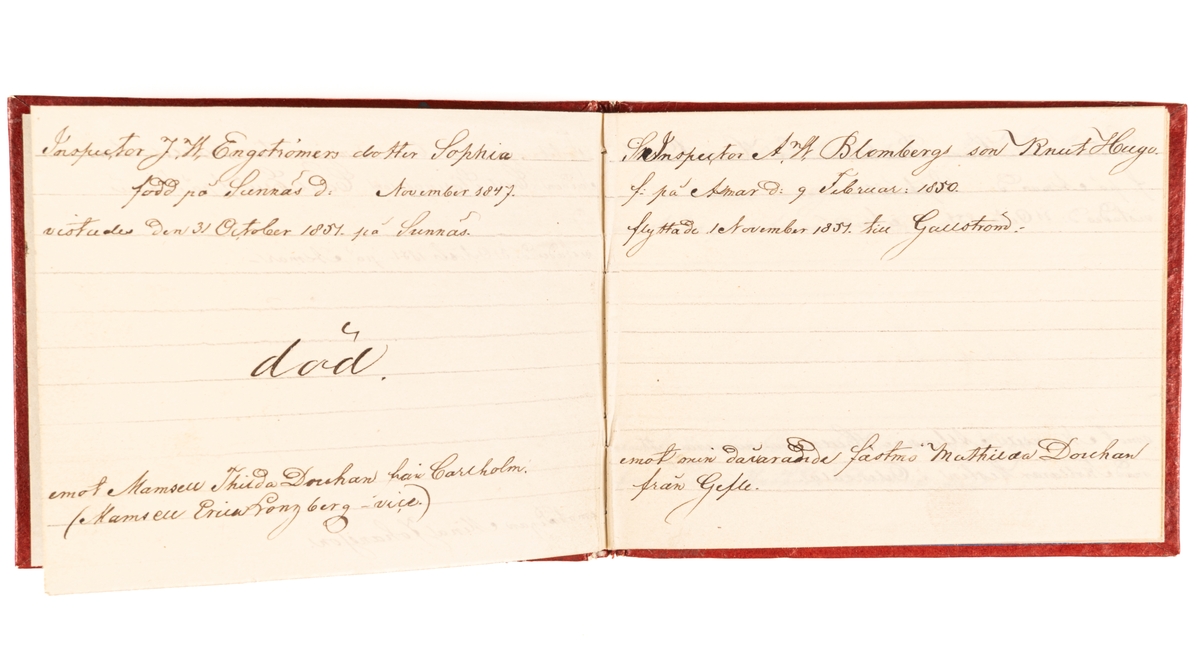 Inspector J. W. Engströmers dotter Sophia
född på Sunnäs d: November 1847.
vistades den 31 October 1851. på Sunnäs.
död.
emot Mamsell Thilda Douhan från Carlholm.
(Mamsell Erica Lonzberg - vice.)
Inspector A. W. Blombergs son Knut Hugo.
f: på Amar d: 9 Februar: 1850.
flyttade 1 November 1851. till Gullströmd.-
emot min dåvarande fästmö Mathilda Douhan
från Gefle.